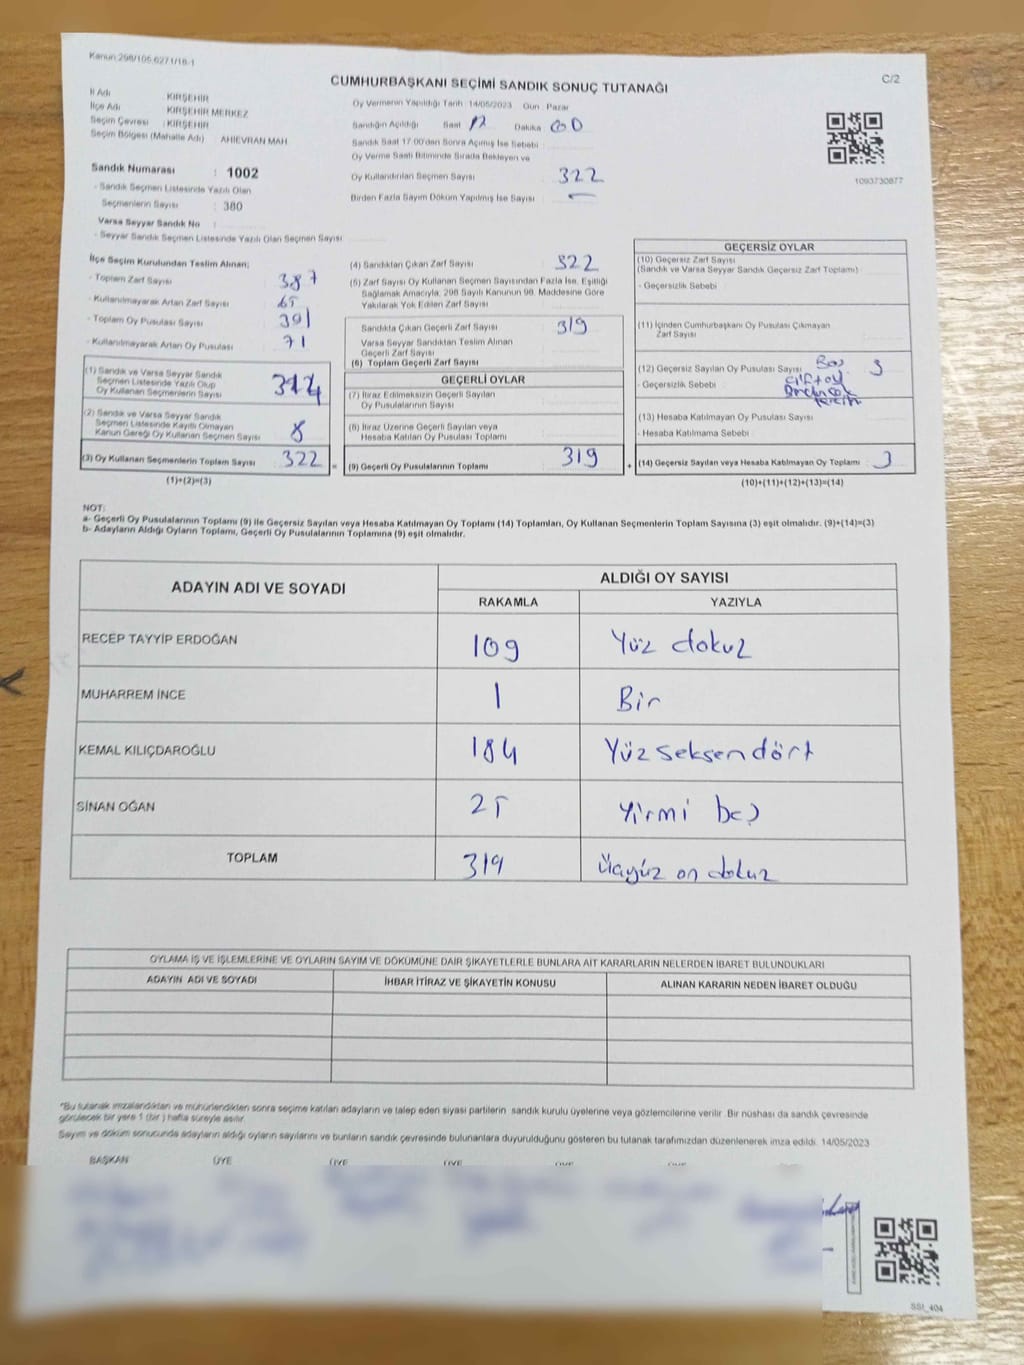 Kanun:298/105 6271/18-1
C/2
CUMHURBAŞKANI SEÇİMİ SANDIK SONUÇ TUTANAĞI
İl Adı : KIRŞEHİR
İlçe Adı : KIRŞEHİR MERKEZ
Seçim Çevresi : KIRŞEHİR
Seçim Bölgesi (Mahalle Adı) AHİEVRAN MAH.
Sandık Numarası : 1002
- Sandık Seçmen Listesinde Yazılı Olan
Seçmenlerin Sayısı : 380
Varsa Seyyar Sandık No :
- Seyyar Sandık Seçmen Listesinde Yazılı Olan Seçmen Sayısı
Oy Vermenin Yapıldığı Tarih : 14/05/2023 Gün : Pazar
Sandığın Açıldığı Saat 17 Dakika 00
Sandık Saat 17.00'den Sonra Açılmış İse Sebebi :
Oy Verme Saati Bitiminde Sırada Bekleyen ve
Oy Kullandırılan Seçmen Sayısı : 322
Birden Fazla Sayım Döküm Yapılmış İse Sayısı : -
1093730877
İlçe Seçim Kurulundan Teslim Alınan;
- Toplam Zarf Sayısı : 387
- Kullanılmayarak Artan Zarf Sayısı : 65
- Toplam Oy Pusulası Sayısı : 391
- Kullanılmayarak Artan Oy Pusulası : 71
(1) Sandık ve Varsa Seyyar Sandık
Seçmen Listesinde Yazılı Olup
Oy Kullanan Seçmenlerin Sayısı : 314
(2) Sandık ve Varsa Seyyar Sandık
Seçmen Listesinde Kayıtlı Olmayan
Kanun Gereği Oy Kullanan Seçmen Sayısı : 8
(3) Oy Kullanan Seçmenlerin Toplam Sayısı : 322
(1)+(2)=(3)
(4) Sandıktan Çıkan Zarf Sayısı : 322
(5) Zarf Sayısı Oy Kullanan Seçmen Sayısından Fazla İse, Eşitliği
Sağlamak Amacıyla; 298 Sayılı Kanunun 98. Maddesine Göre
Yakılarak Yok Edilen Zarf Sayısı
Sandıkta Çıkan Geçerli Zarf Sayısı : 319
Varsa Seyyar Sandıktan Teslim Alınan
Geçerli Zarf Sayısı
(6) Toplam Geçerli Zarf Sayısı
GEÇERLİ OYLAR
(7) İtiraz Edilmeksizin Geçerli Sayılan
Oy Pusulalarının Sayısı
(8) İtiraz Üzerine Geçerli Sayılan veya
Hesaba Katılan Oy Pusulası Toplamı
(9) Geçerli Oy Pusulalarının Toplamı : 319
GEÇERSİZ OYLAR
(10) Geçersiz Zarf Sayısı
(Sandık ve Varsa Seyyar Sandık Geçersiz Zarf Toplamı)
- Geçersizlik Sebebi
(11) İçinden Cumhurbaşkanı Oy Pusulası Çıkmayan
Zarf Sayısı
(12) Geçersiz Sayılan Oy Pusulası Sayısı : Boş 3
- Geçersizlik Sebebi : çift oy
(13) Hesaba Katılmayan Oy Pusulası Sayısı
- Hesaba Katılmama Sebebi
(14) Geçersiz Sayılan veya Hesaba Katılmayan Oy Toplamı : 3
(10)+(11)+(12)+(13)=(14)
NOT:
a- Geçerli Oy Pusulalarının Toplamı (9) ile Geçersiz Sayılan veya Hesaba Katılmayan Oy Toplamı (14) Toplamları, Oy Kullanan Seçmenlerin Toplam Sayısına (3) eşit olmalıdır. (9)+(14)=(3)
b- Adayların Aldığı Oyların Toplamı, Geçerli Oy Pusulalarının Toplamına (9) eşit olmalıdır.
ADAYIN ADI VE SOYADI
ALDIĞI OY SAYISI
RAKAMLA YAZIYLA
RECEP TAYYİP ERDOĞAN 109 Yüz dokuz
MUHARREM İNCE 1 Bir
KEMAL KILIÇDAROĞLU 184 Yüz seksen dört
SİNAN OĞAN 25 Yirmi beş
TOPLAM 319 Üçyüz on dokuz
OYLAMA İŞ VE İŞLEMLERİNE VE OYLARIN SAYIM VE DÖKÜMÜNE DAİR ŞİKAYETLERLE BUNLARA AİT KARARLARIN NELERDEN İBARET BULUNDUKLARI
ADAYIN ADI VE SOYADI İHBAR İTİRAZ VE ŞİKAYETİN KONUSU ALINAN KARARIN NEDEN İBARET OLDUĞU
"Bu tutanak imzalandıktan ve mühürlendikten sonra seçime katılan adayların ve talep eden siyasi partilerin sandık kurulu üyelerine veya gözlemcilerine verilir. Bir nüshası da sandık çevresinde
görülecek bir yere 1 (bir ) hafta süreyle asılır.
Sayım ve döküm sonucunda adayların aldığı oyların sayılarını ve bunların sandık çevresinde bulunanlara duyurulduğunu gösteren bu tutanak tarafımızdan düzenlenerek imza edildi. 14/05/2023
BAŞKAN ÜYE ÜYE ÜYE
SSI_404